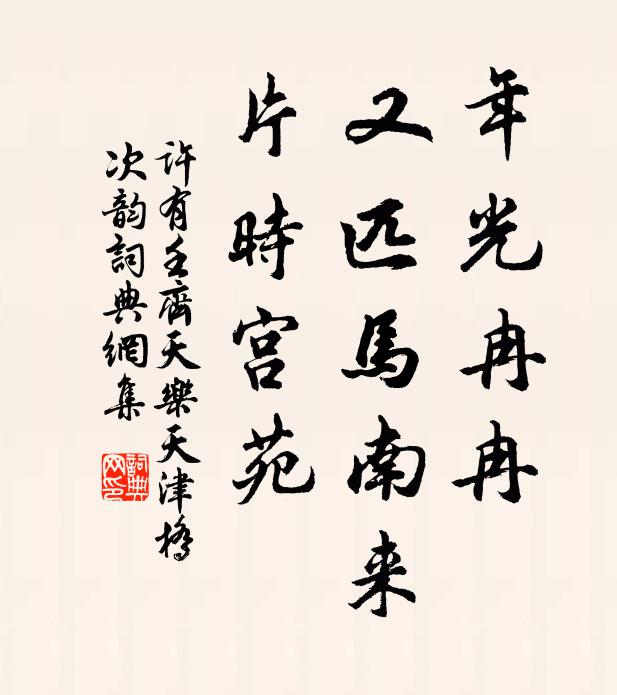 年光冉冉
又匹馬南来
片時宫苑
许有壬齊天樂天津橋
次韵詞典網集
詞典网印